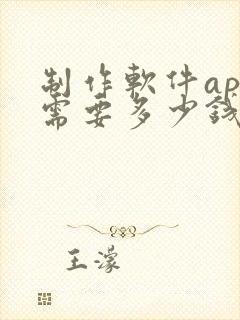 制作軟件ap
需要多少錢
王濛